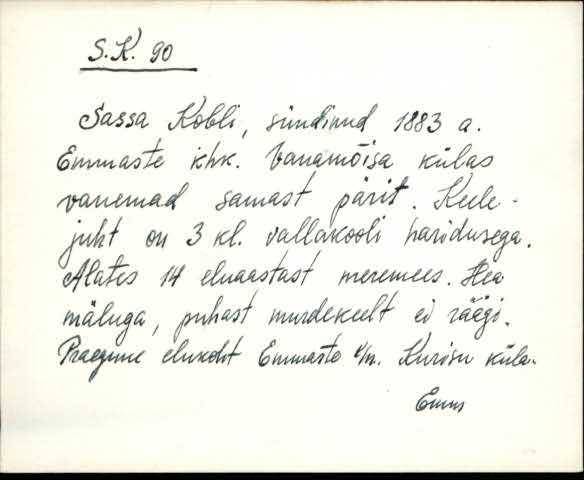 S.K. 90
Sassa Kobli, sündinud 1883 a.
Emmaste khk. Vanamõisa külas
vanemad samast pärit. Keele-
juht on 3 kl. vallakooli haridusega.
Alates 14 eluaastast meremees. Hea
mäluga, puhast murdekeelt ei räägi.
Praegune elukoht Emmaste k/n. Kurisu küla.
Emms